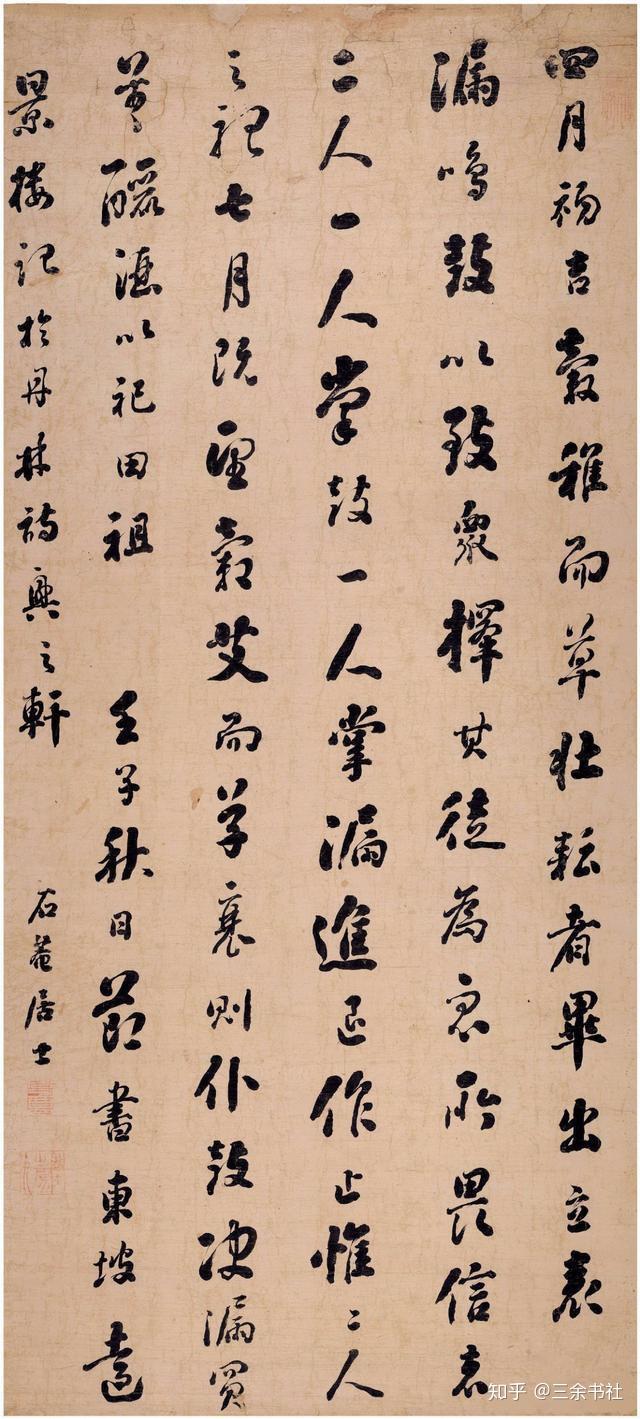 四月初吉穀稚而草壯耘者畢出立表
漏鳴鼓以致衆擇其徒為衆所畏信者
二人一人掌鼓一人掌漏進退作止惟二人
之聽七月既望穀艾而草衰則仆鼓決漏買
羊豕釃酒以祀田祖 壬子秋日節書東坡遠
景樓記於丹林詩興之軒 石菴居士
知乎 @三余书社